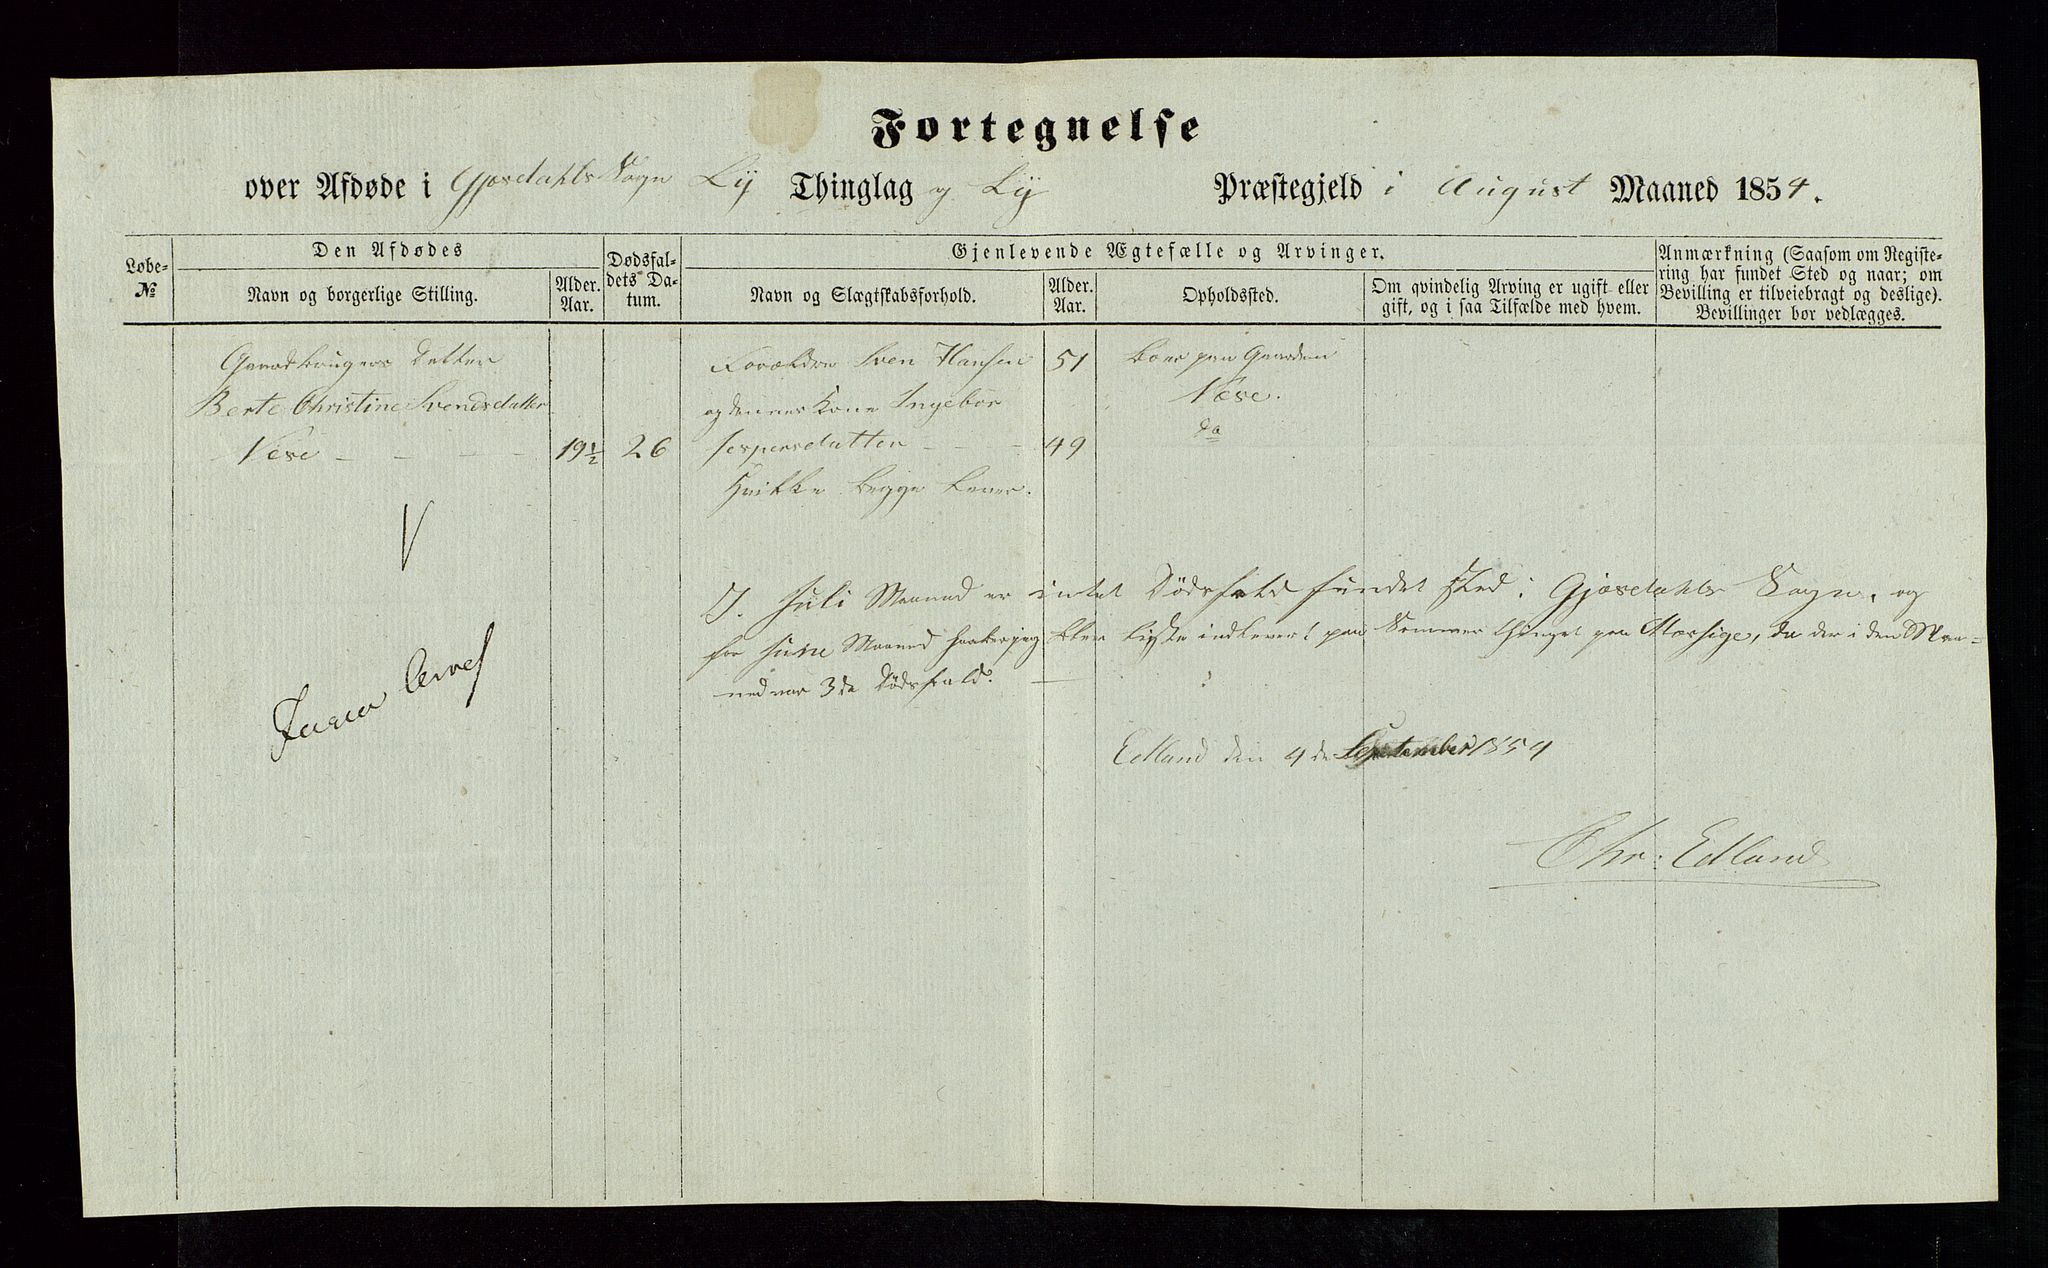 Fortegnelse
over Afdøde i Gjæsdahls Sogn Lÿ Thinglag og Lÿ Præstegjeld i August Maaned 1854.
Løbe- №
Den Afdødes
Navn og borgerlige Stilling.
Alder. Aar.
Dødsfal- dets Da- tum.
Gjenlevende Ægtefælle og Arvinger.
Navn og Slægtskabsforhold.
Alder. Aar.
Opholdssted.
Om qvindelig Arving er ugift eller
gift, og i saa Tilfælde med hvem.
Anmærkning (Saasom om Registe-
ring har fundet Sted og naar; om
Bevilling er tilveiebragt og deslige).
Bevillinger bør vedlægges.
Gaardbrugers Datter Forældre Sven Hansen 51 boer paa Gaarden
Berte Christine Svendsdatter og dennes Kone Ingebor Næse.
Næse - - - - 19 1/2 26 Jespersdatter - - 49 do
hvilke begge lever.
I. Juli Maaned er intet Dødsfald fundet sted i Gjæsdahls Sogn, og
for Juni Maaned Liste indlevert paa Sommerthinget paa Morsige, da der i den Maa-
ned var 3de Dødsfald.
Edland den 4de September 1854
Chr. Edland